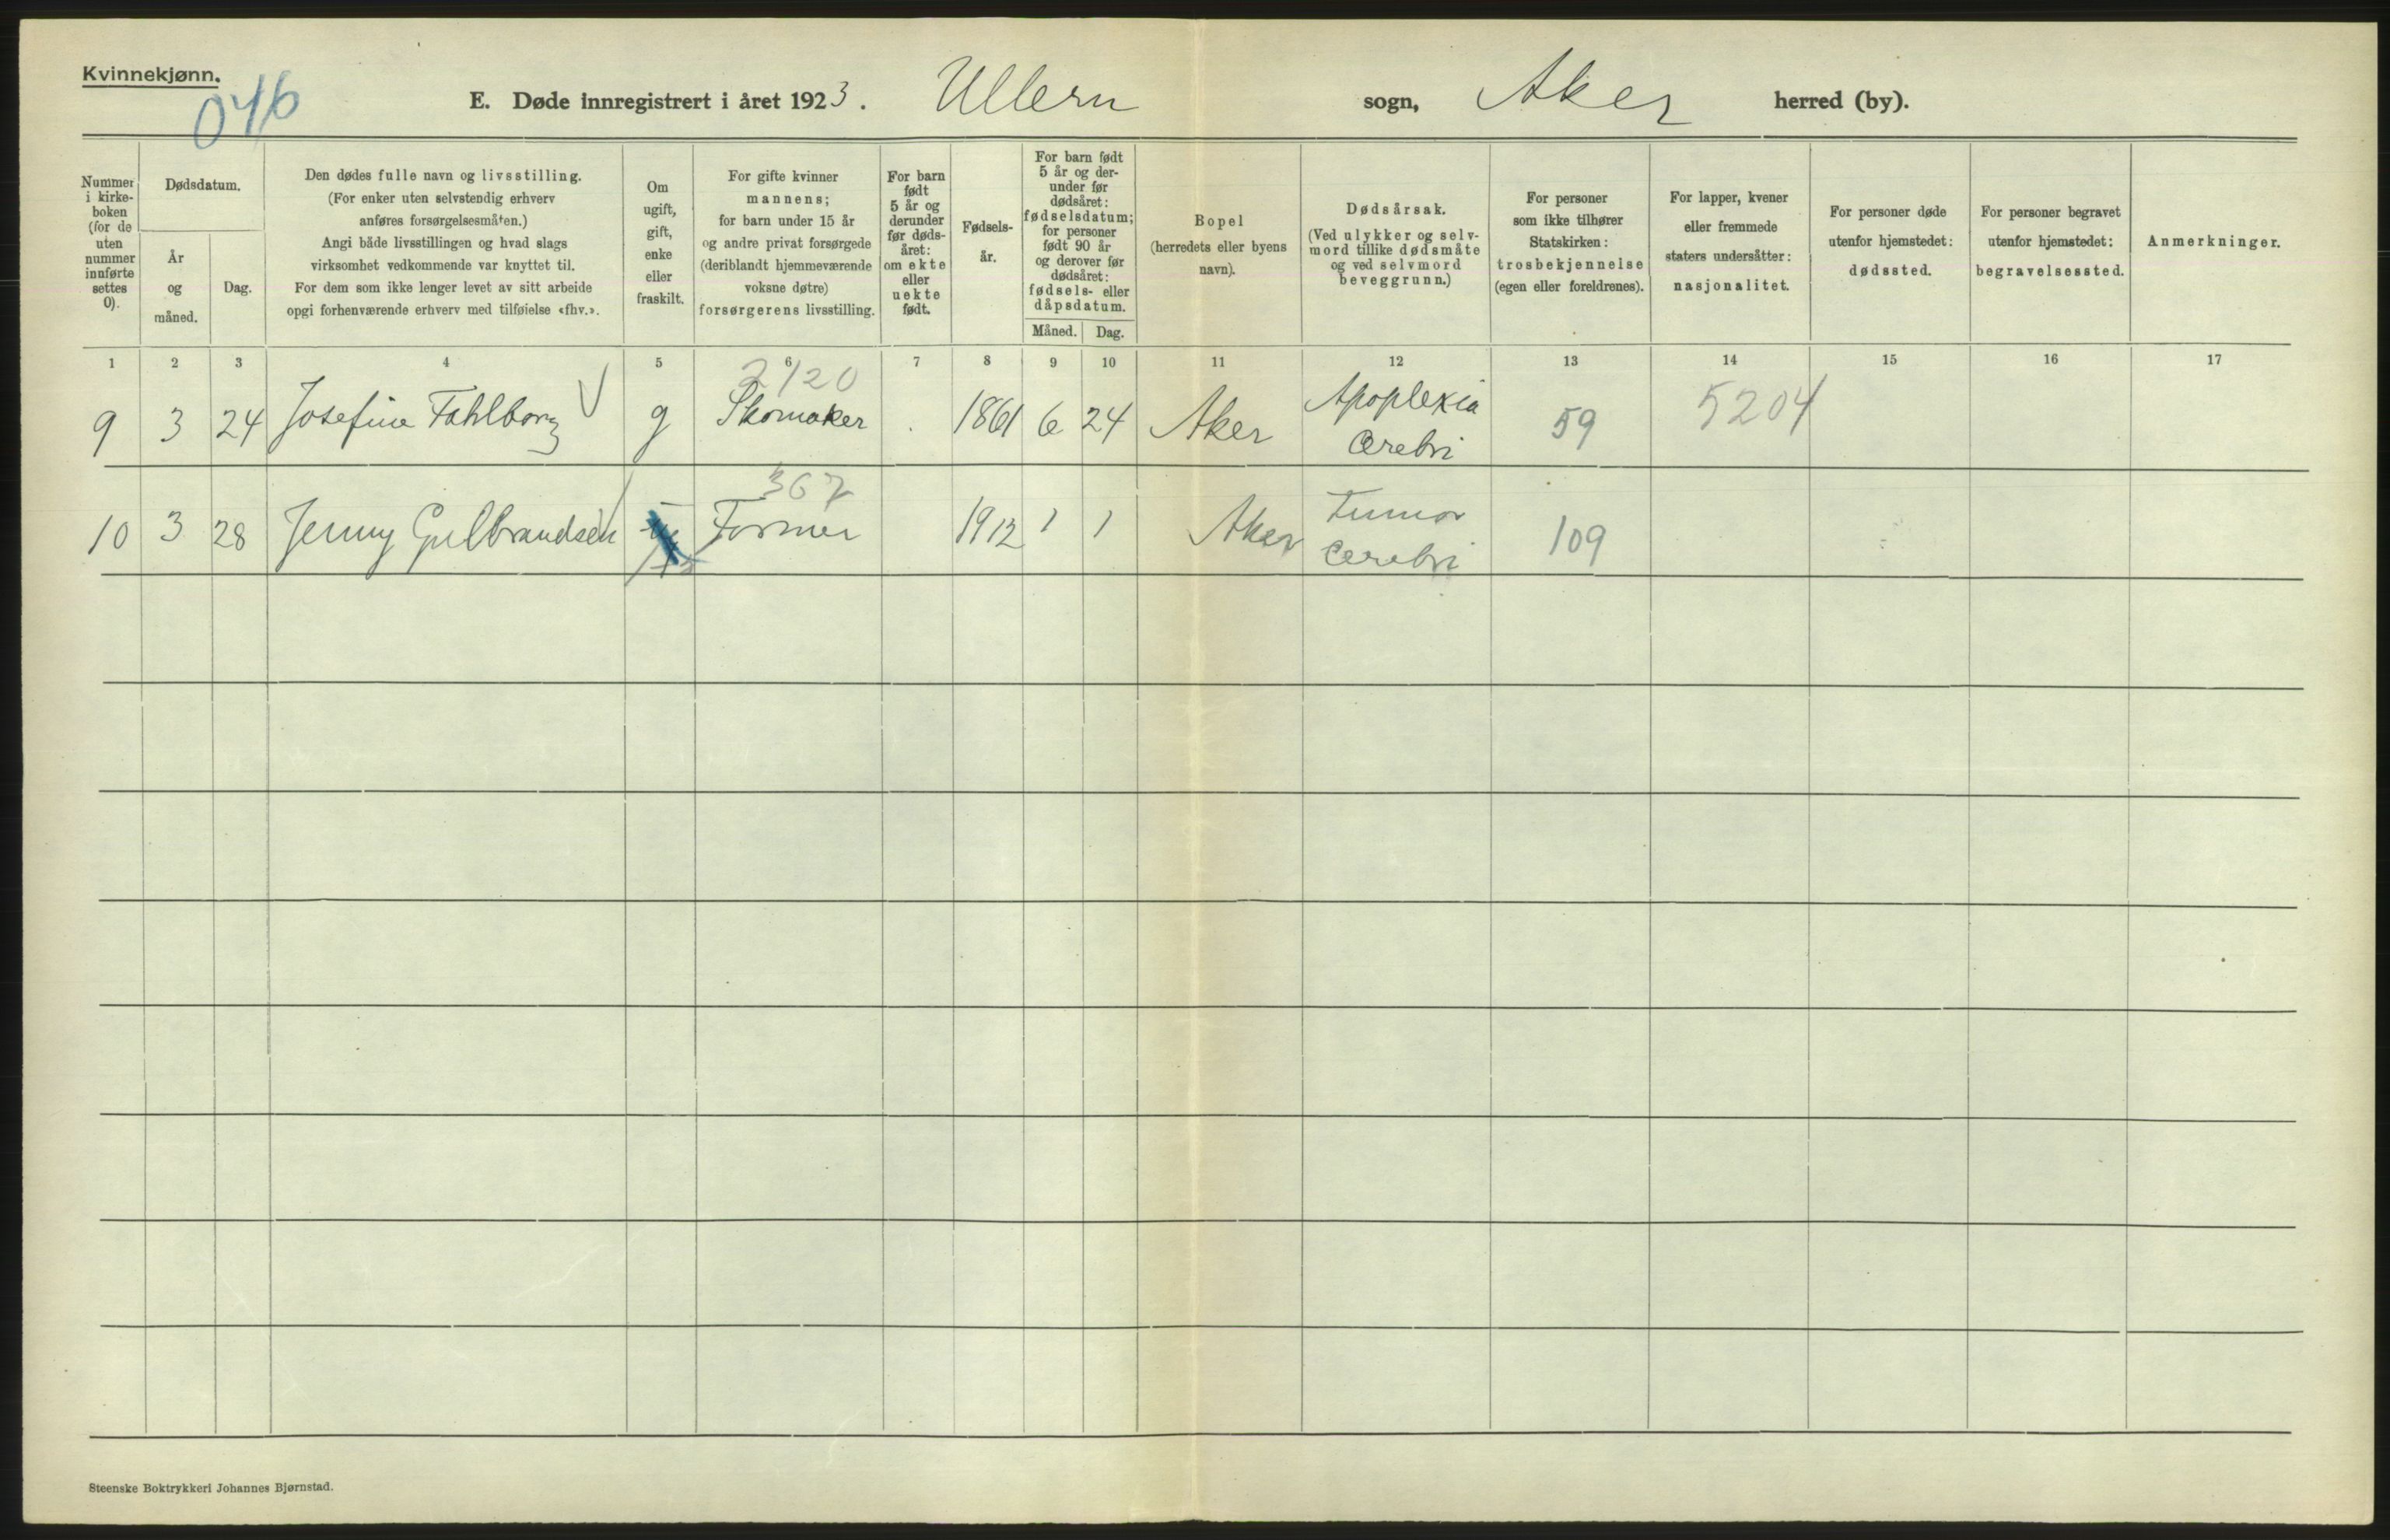 Kvinnekjønn.
046
E. Døde innregistrert i året 1923. Ullern sogn, Aker herred (by).
Nummer i kirke-
boken
(for de
uten
nummer
innførte
settes
0).
Dødsdatum.
År
og
måned.
Dag.
Den dødes fulle navn og livsstilling.
(For enker uten selvstendig erhverv
anføres forsørgelsesmåten.)
Angi både livsstillingen og hvad slags
virksomhet vedkommende var knyttet til.
For dem som ikke lenger levet av sitt arbeide
opgi forhenværende erhverv med tilføielse «fhv.».
Om
ugift,
gift,
enke
eller
fraskilt.
For gifte kvinner
mannens;
for barn under 15 år
og andre privat forsørgede
(deriblandt hjemmeværende
voksne døtre)
forsørgerens livsstilling.
For barn
født
5 år og
derunder
før døds-
året:
om ekte
eller
uekte
født.
Fødsels-
år.
For barn født
5 år og der-
under før
dødsåret:
fødselsdatum;
for personer
født 90 år
og derover før
dødsåret:
fødsels- eller
dåpsdatum.
Måned. Dag.
Bopel
(herredets eller byens
navn).
Dødsårsak.
(Ved ulykker og selv-
mord tillike dødsmåte
og ved selvmord
beveggrunn.)
For personer
som ikke tilhører
Statskirken:
trosbekjennelse
(egen eller foreldrenes).
For lapper, kvener
eller fremmede
staters undersåtter:
nasjonalitet.
For personer døde
utenfor hjemstedet:
dødssted.
For personer begravet
utenfor hjemstedet:
begravelsessted.
Anmerkninger.
1 2 3 4 5 6 7 8 9 10 11 12 13 14 15 16 17
2120
9 3 24 Josefine Fahlborg g Skomaker 1861 6 24 Aker Apoplexia
Cerebri 59 5204
367
10 3 28 Jenny Gulbrandsen Former 1912 1 1 Aker Tumor
Cerebri 109
Steenske Boktrykkeri Johannes Bjørnstad.